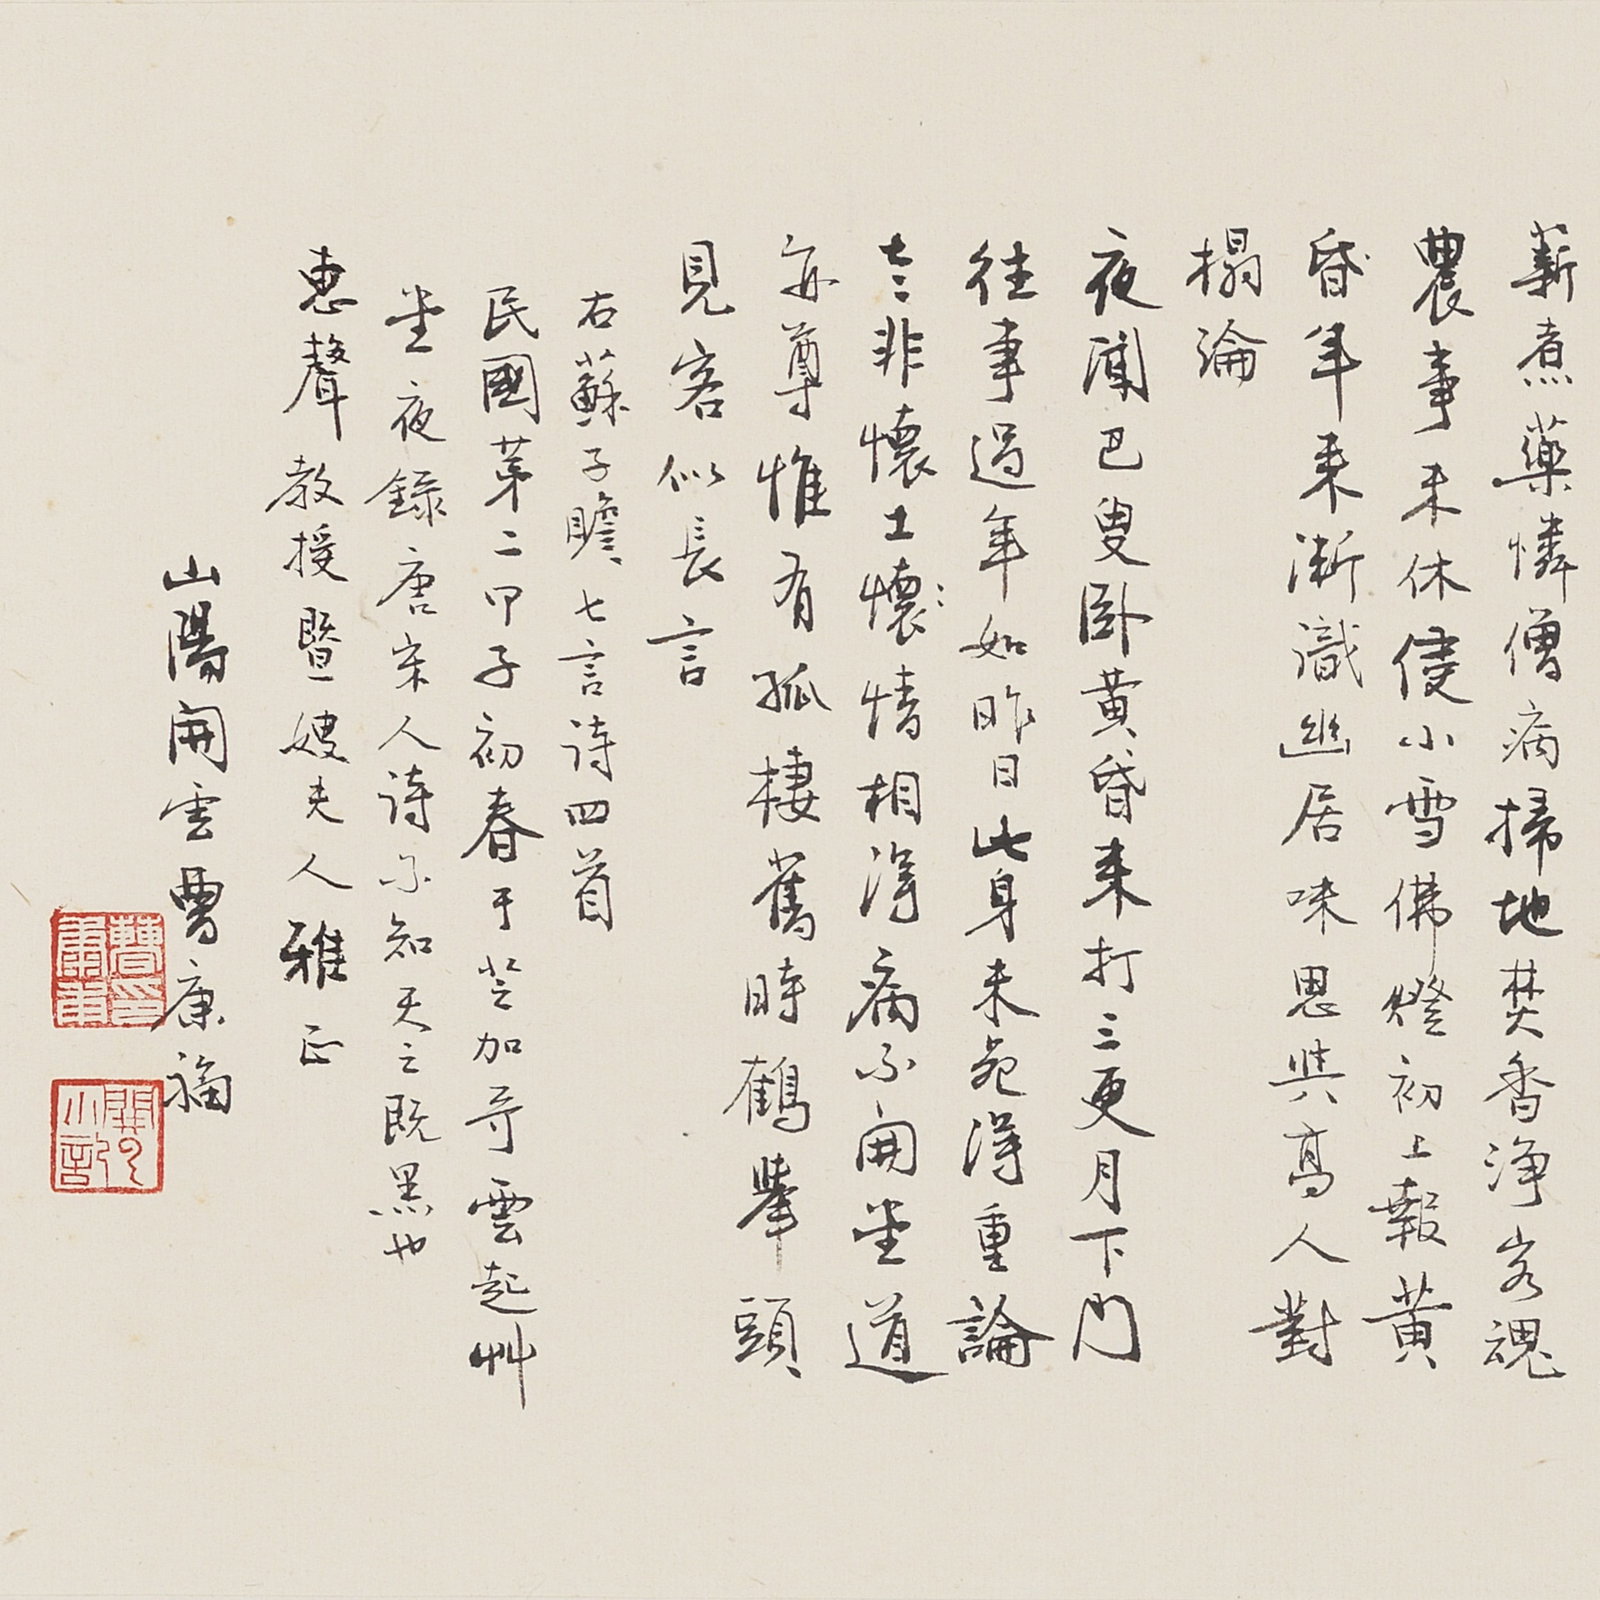 薪煮藥憐僧病掃地焚香淨客魂
農事未休侵小雪佛燈初上報黃
昏年來漸識幽居味思與高人對
榻論
夜闌巴叟臥黃昏來打三更月下門
往事過年如昨日此身未死得重論
老非懷土懷情相得病不開堂道
亦尊惟有孤棲舊時鶴舉頭
見客似長言
右蘇子瞻七言詩四首
民國第二甲子初春于芝加哥雲起艸
堂夜錄唐宋人詩不知天之既黑也
惠聲教授暨嫂夫人雅正
山陽開雲曹康福